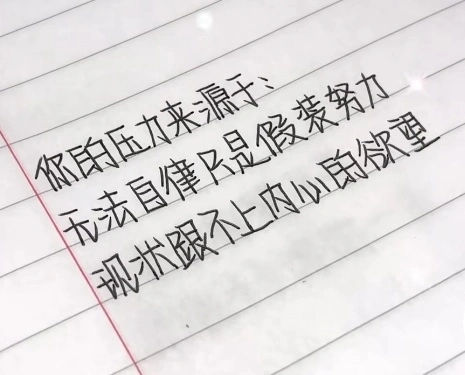 你的压力来源于、
无法自律只是假装努力
现状跟不上内心的欲望